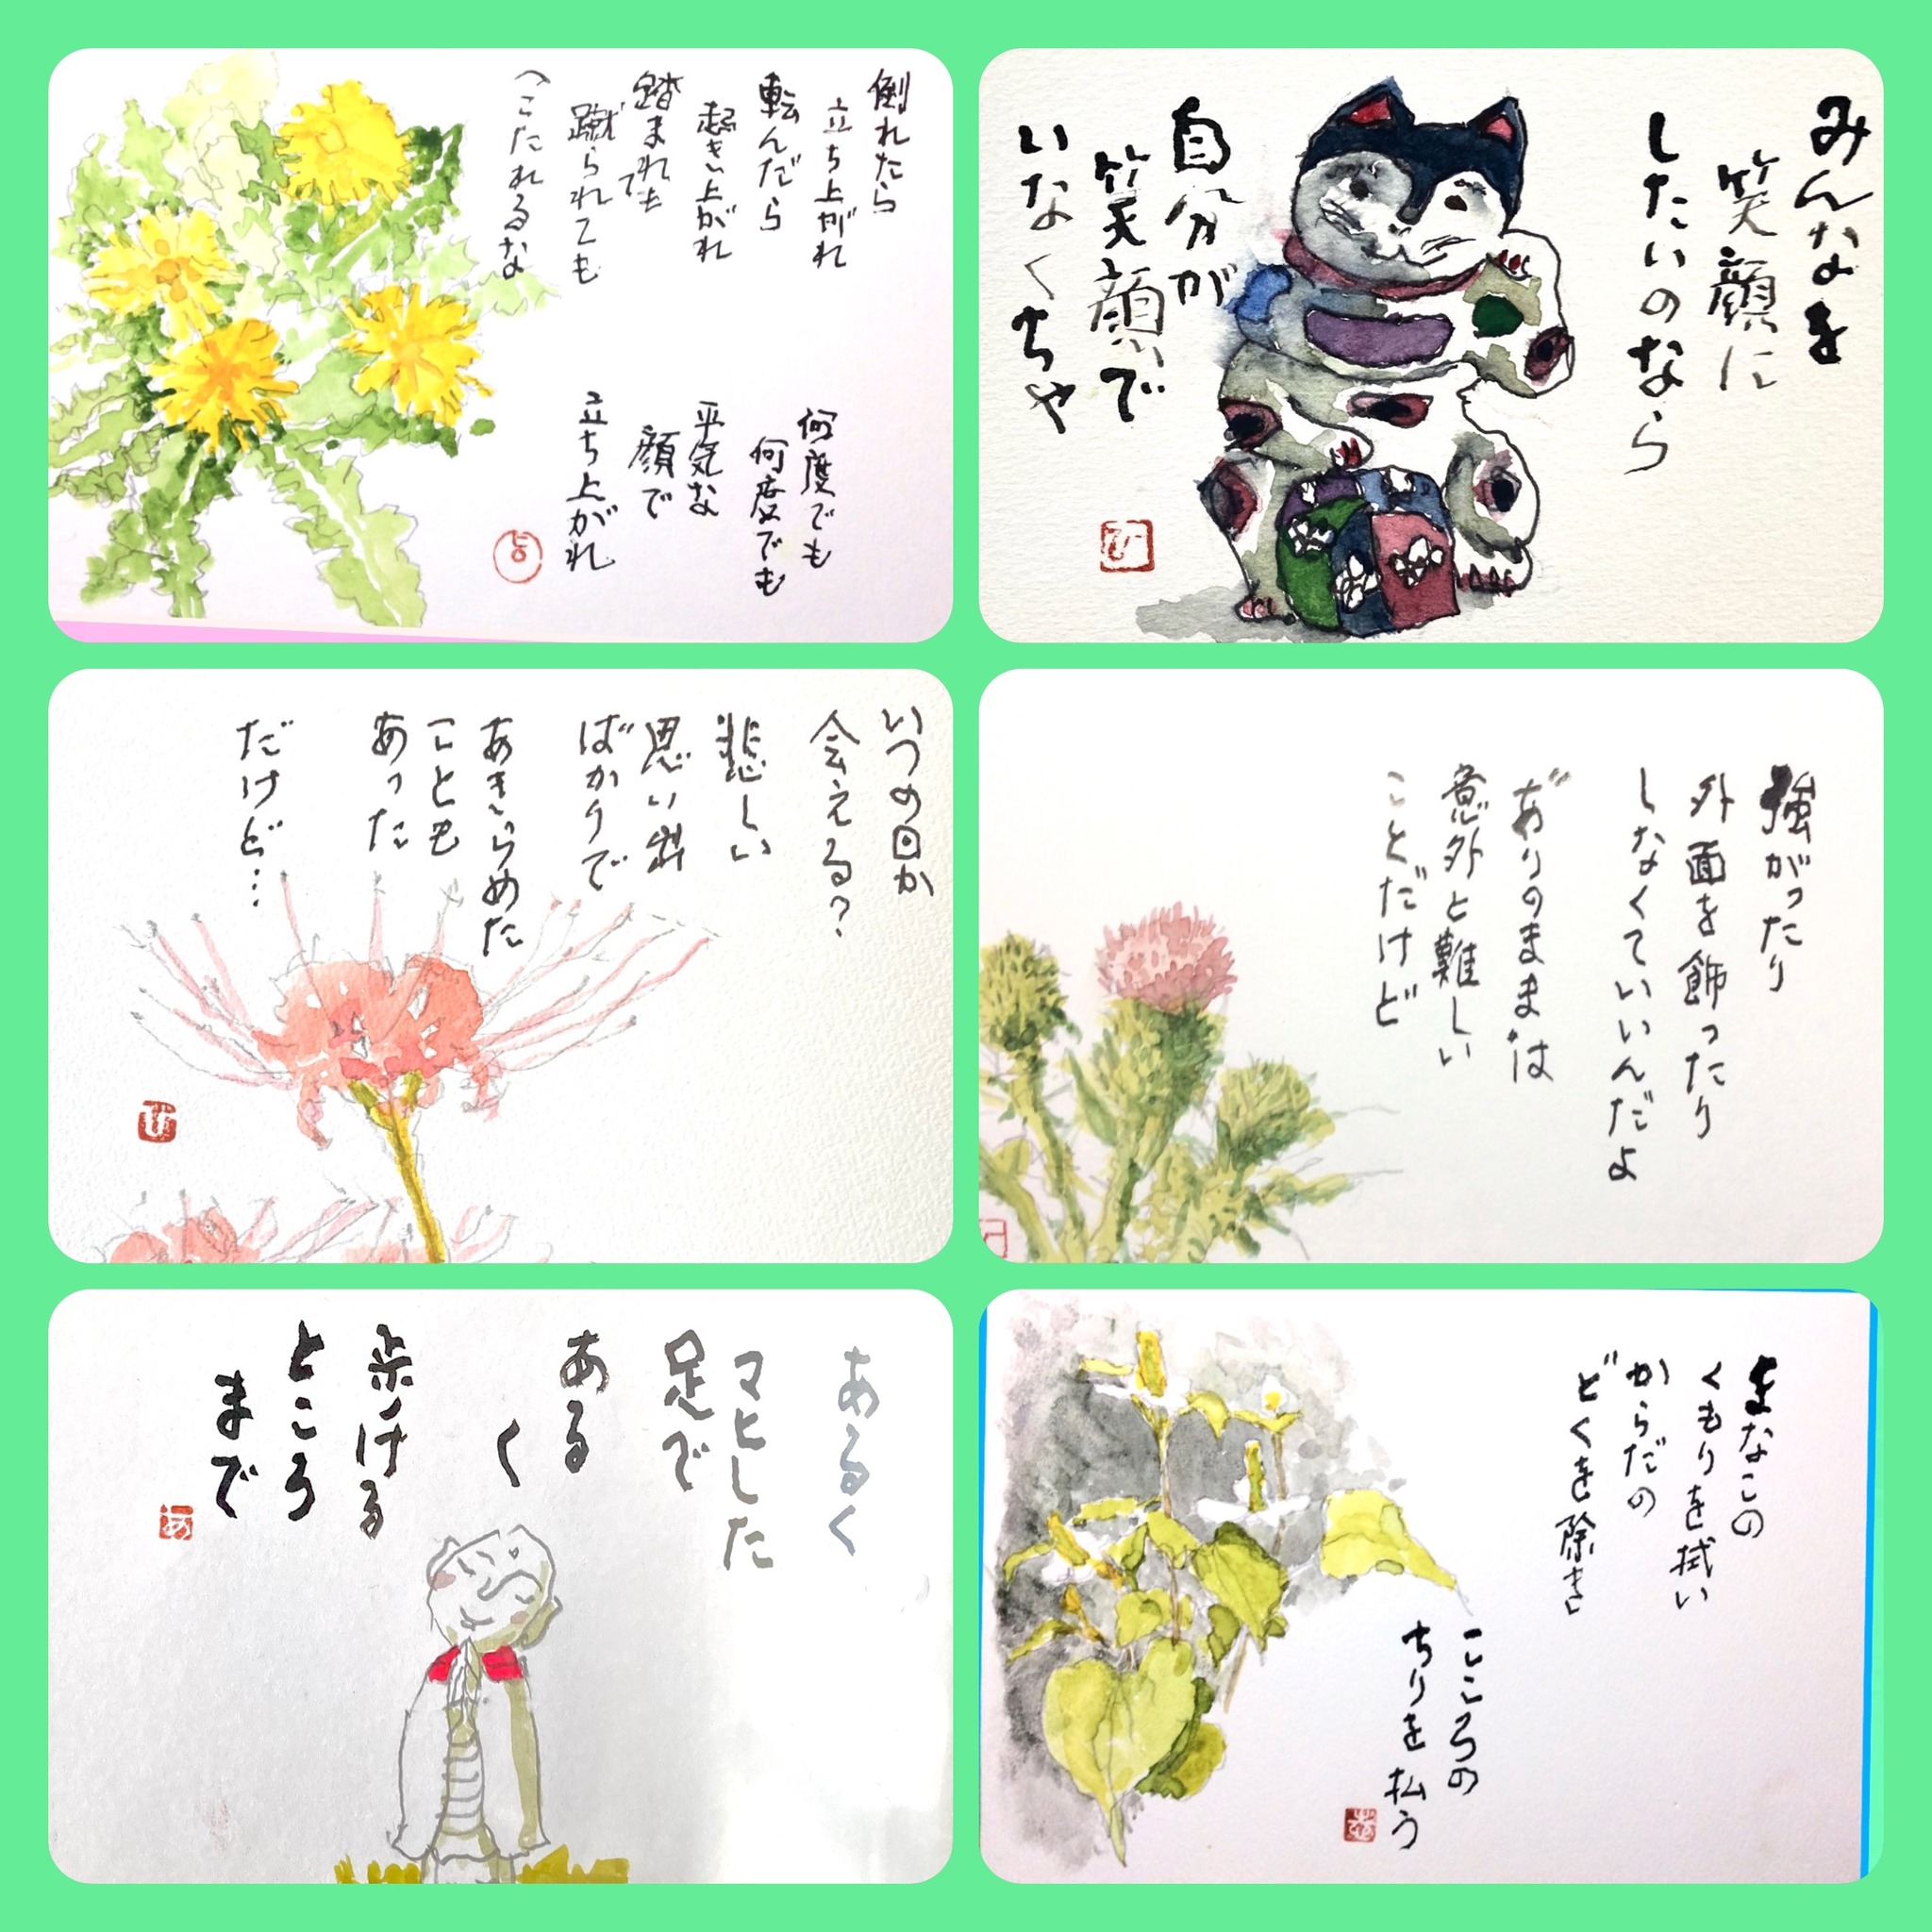 倒れたら
立ち上がれ
転んだら
起き上がれ
踏まれても
蹴られても
へこたれるな
何度でも
何度でも
平気な
顔で
立ち上がれ
みんなを
笑顔に
したいのなら
自分が
笑顔で
いなくちゃ
いつの日か
会える？
悲しい
思い出
ばかりで
あきらめた
ことも
あった
だけど…
強がったり
外面を飾ったり
しなくていいんだよ
ありのままは
意外と難しい
ことだけど
あるく
マヒした
足で
ある
く
歩ける
ところ
まで
まなこの
くもりを拭い
からだの
どくを除き
こころの
ちりを払う